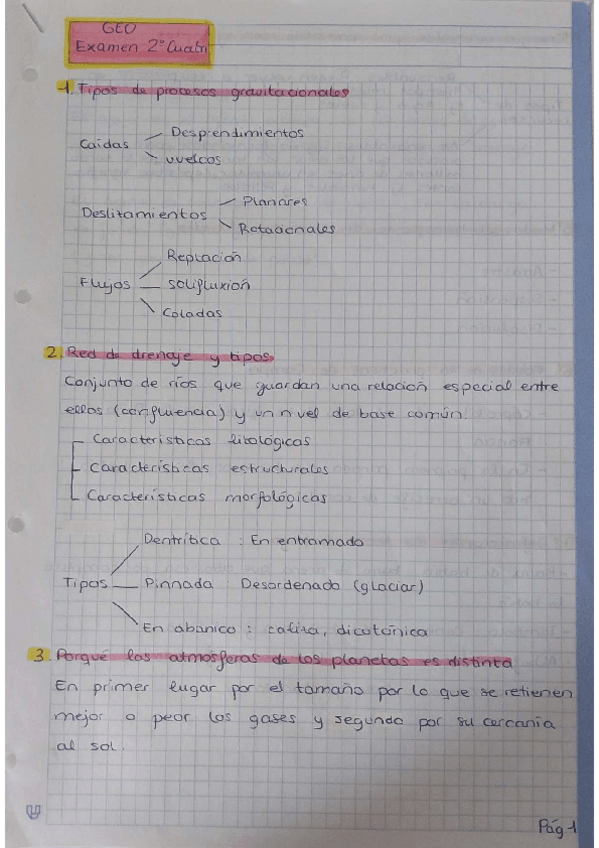 GEO
Examen 2º Cuatri
1. Tipos de procesos gravitacionales
Caídas
Desprendimientos
vuelcos
Deslitamientos
Planares
Rotacionales
Flujos
Reptación
solifluxión
Coladas
2. Red de drenaje y tipos
Conjunto de ríos que guardan una relación especial entre
ellos (confluencia) y un nivel de base común.
Características litológicas
Características estructurales
Características morfológicas
Tipos
Dentrítica : En entramado
Pinnada : Desordenado (glaciar)
En abanico : caliza,
3. Porqué las atmosferas de los planetas es distinta
En primer lugar por el tamaño por lo que se retienen
mejor o peor los gases y segundo por su cercanía
al sol.
Pág 1